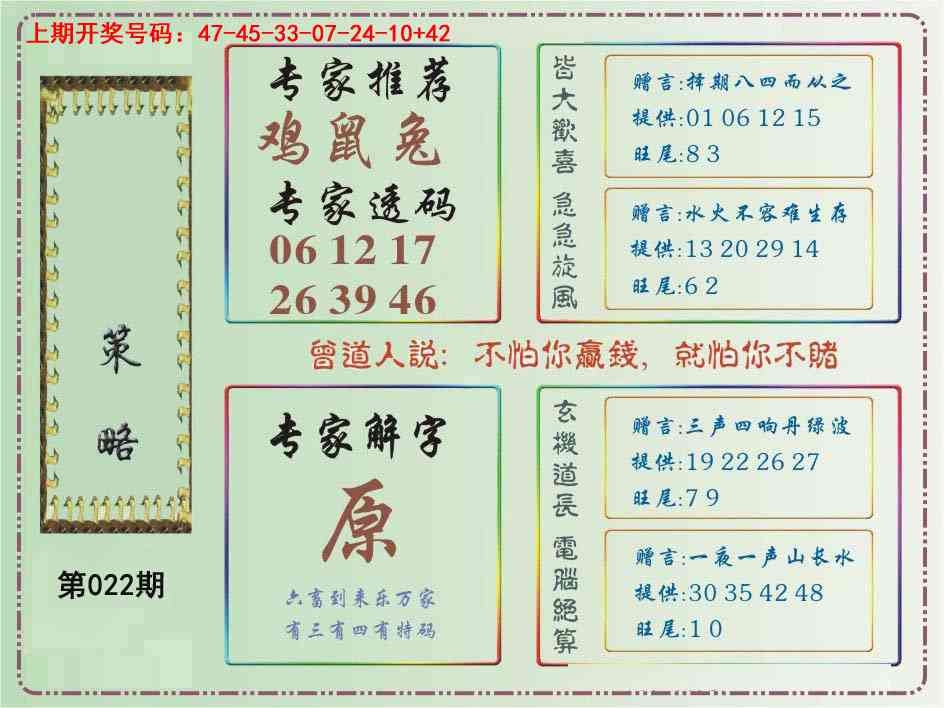 上期开奖号码：47-45-33-07-24-10+42
策略
第022期
专家推荐
鸡鼠兔
专家透码
06 12 17
26 39 46
皆大歡喜
赠言:择期八四而从之
提供:01 06 12 15
旺尾:8 3
急急旋風
赠言:水火不容难生存
提供:13 20 29 14
旺尾:6 2
曾道人説：不怕你贏錢，就怕你不賭
专家解字
原
六畜到来乐万家
有三有四有特码
玄機道長
赠言:三声四响丹绿波
提供:19 22 26 27
旺尾:7 9
電腦絕算
赠言:一夜一声山长水
提供:30 35 42 48
旺尾:1 0